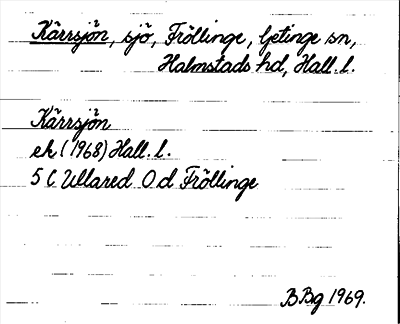 Kärrsjön, sjö, Fröllinge, Getinge sn,
Halmstads hd, Hall. l.
Kärrsjön
ek (1968) Hall. l.
5 C Ullared O d Fröllinge
BBg 1969.